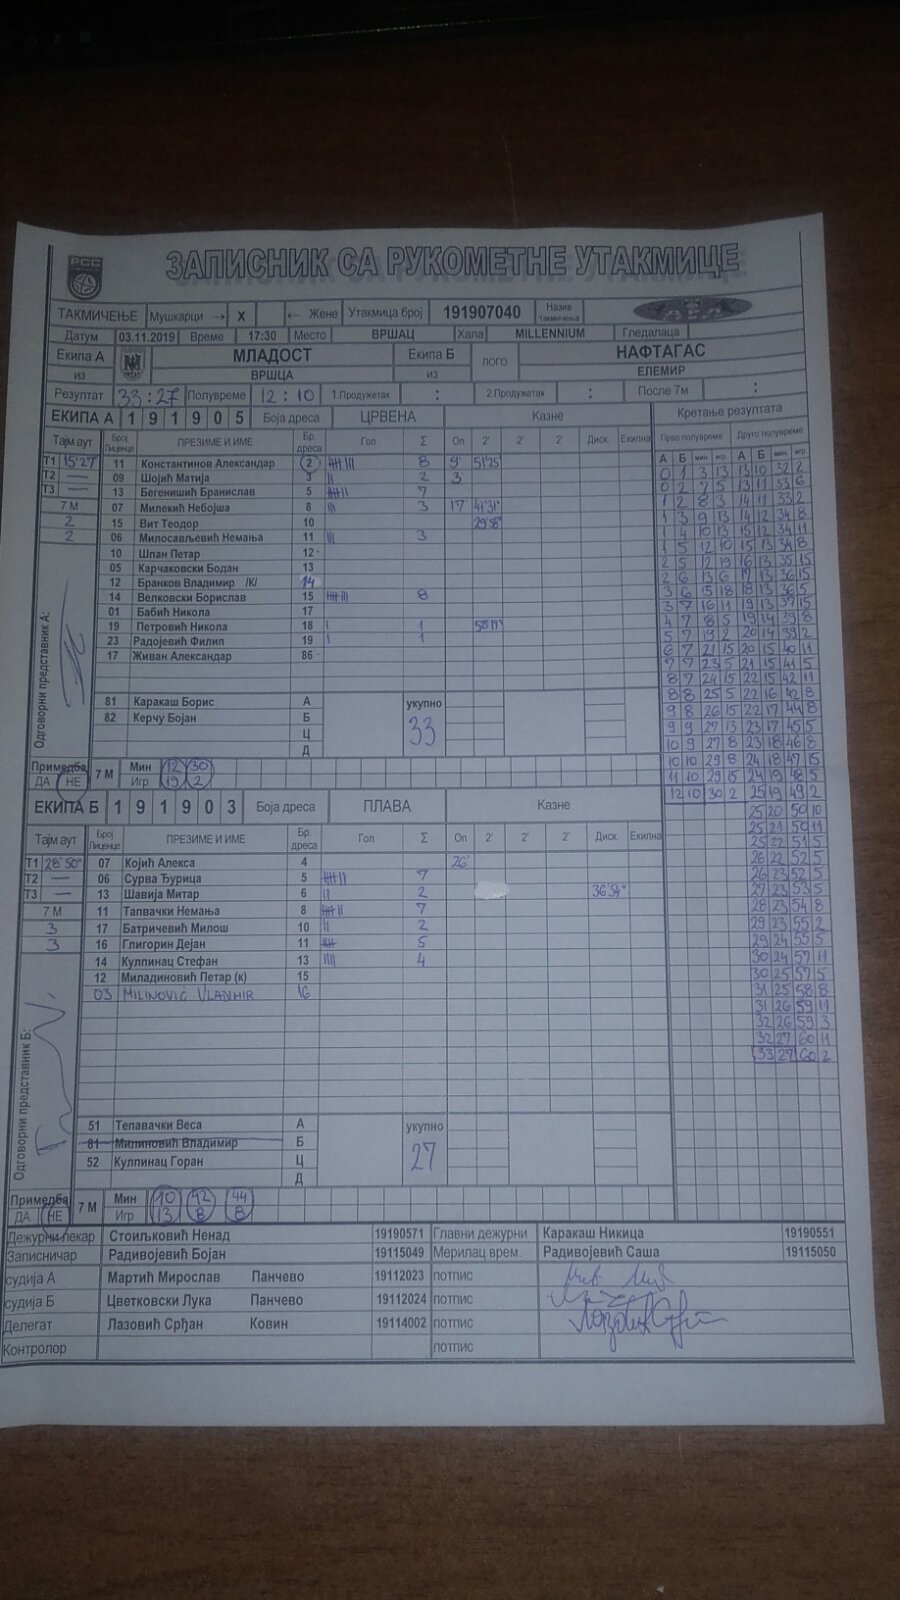 РСС
ЗАПИСНИК СА РУКОМЕТНЕ УТАКМИЦЕ
ТАКМИЧЕЊЕ Мушкарци → X ← Жене Утакмица број 191907040 Назив такмичења
Датум 03.11.2019 Време 17:30 Место ВРШАЦ Хала MILLENNIUM Гледалаца
Екипа А МЛАДОСТ Екипа Б лого НАФТАГАС
из ВРШЦА из ЕЛЕМИР
Резултат 33:27 Полувреме 12:10 1.Продужетак : 2.Продужетак : После 7м :
ЕКИПА А 1 9 1 9 0 5 Боја дреса ЦРВЕНА Казне Кретање резултата
Тајм аут Број Лиценце ПРЕЗИМЕ И ИМЕ Бр. дреса Гол Σ Оп 2' 2' 2' Диск. Екипна Прво полувреме Друго полувреме
А Б мин игр А Б мин игр
Т1 15'27 11 Константинов Александар 2 8 9' 51'25
Т2 — 09 Шојић Матија 3 2 3
Т3 — 13 Бегенишић Бранислав 5 7
7 М 07 Милекић Небојша 8 3 17 41'31"
2 15 Вит Теодор 10 29'58"
2 06 Милосављевић Немања 11 3
10 Шпан Петар 12
05 Карчаковски Бодан 13
12 Бранков Владимир /К/ 14
14 Велковски Борислав 15 8
01 Бабић Никола 17
19 Петровић Никола 18 1
23 Радојевић Филип 19 1
17 Живан Александар 86
Одговорни представник А:
81 Каракаш Борис А укупно
82 Керчу Бојан Б 33
Ц
Д
0 1 3 13 13 10 32 2
0 2 7 5 13 11 33 6
1 2 8 3 14 11 33 2
1 3 9 13 14 12 34 8
1 4 10 13 15 12 34 11
1 5 12 10 15 13 34 8
2 5 12 19 16 13 35 15
2 6 13 6 17 13 36 15
3 6 15 18 18 13 36 5
3 7 16 11 19 13 37 15
4 7 18 5 19 14 39 8
5 7 19 2 20 14 39 2
6 7 21 15 20 15 40 11
7 7 23 5 21 15 41 5
8 7 24 15 22 15 42 11
8 8 25 5 22 16 42 8
9 8 26 15 22 17 44 8
9 9 27 13 23 17 45 5
10 9 27 8 23 18 46 8
10 10 29 8 24 18 47 15
11 10 29 15 24 19 48 5
12 10 30 2 25 19 49 2
25 20 50 10
25 21 50 11
25 22 51 5
26 22 52 5
26 23 52 5
27 23 53 5
28 23 54 8
29 23 55 2
29 24 55 5
30 24 57 11
30 25 57 5
31 25 58 8
31 26 59 11
32 26 59 3
32 27 60 11
33 27 60 2
Примедба 7 М Мин 12 30
ДА НЕ Игр 19 2
ЕКИПА Б 1 9 1 9 0 3 Боја дреса ПЛАВА Казне
Тајм аут Број Лиценце ПРЕЗИМЕ И ИМЕ Бр. дреса Гол Σ Оп 2' 2' 2' Диск. Екипна
Т1 28'50" 07 Којић Алекса 4 26'
Т2 — 06 Сурва Ђурица 5 7
Т3 — 13 Шавија Митар 6 2 36'54"
7 М 11 Тапвачки Немања 8 7
3 17 Батричевић Милош 10 2
3 16 Глигорин Дејан 11 5
14 Кулпинац Стефан 13 4
12 Миладиновић Петар (к) 15
03 MILINOVIĆ VLADIMIR 16
Одговорни представник Б:
51 Тепавачки Веса А укупно
81 Милиновић Владимир Б 27
52 Кулпинац Горан Ц
Д
Примедба 7 М Мин 10 42 44
ДА НЕ Игр 13 8 8
Дежурни лекар Стоиљковић Ненад 19190571 Главни дежурни Каракаш Никица 19190551
Записничар Радивојевић Бојан 19115049 Мерилац врем. Радивојевић Саша 19115050
судија А Мартић Мирослав Панчево 19112023 потпис
судија Б Цветковски Лука Панчево 19112024 потпис
Делегат Лазовић Срђан Ковин 19114002 потпис
Контролор потпис